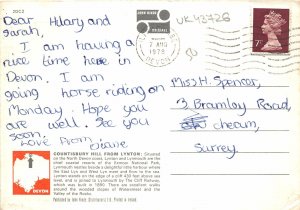 2DC2
UK43726
Dear Hilary and
Sarah,
I am having a
nice time here in
Devon. I am
going horse riding on
Monday. Hope you
are well. See you
soon.
Love from Diane
7 AUG
1978
DEVON
7P
Miss H. Spencer,
3 Bramley Road,
cheam,
Surrey.
COUNTISBURY HILL FROM LYNTON: Situated
on the North Devon coast, Lynton and Lynmouth are the
main coastal resorts of the Exmoor National Park.
Lynmouth is the lower village nestling beside the
East Lyn and West Lyn rivers and the
stands on the edge of a cliff 430 feet above sea
level, and is joined to Lynmouth by The Cliff Railway,
which was built in 1890. There are excellent walks
around the wooded slopes of Watersmeet and the
Valley of the Rocks.
DEVON